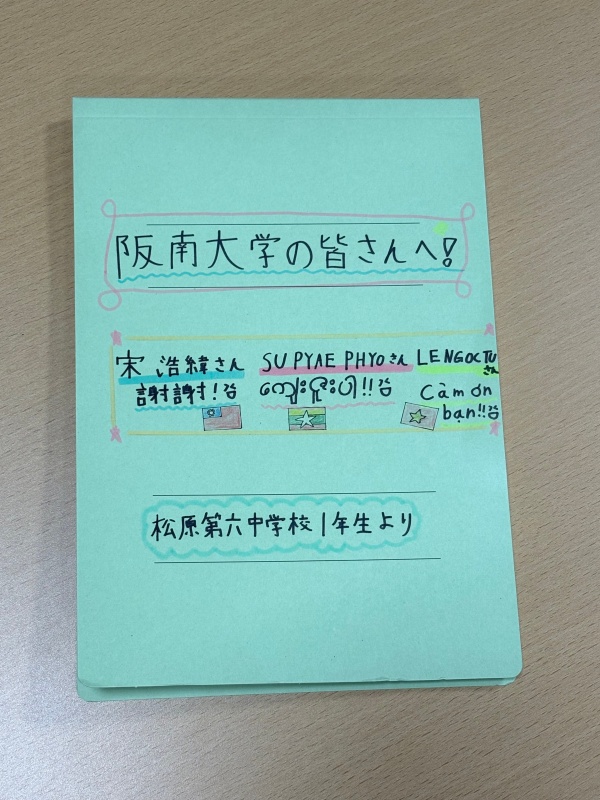 阪南大学の皆さんへ!
宋 浩緯さん SU PYAE PHYO さん LE NGOC TU さん
謝謝! ကျေးဇူးပါ!! Cảm ơn bạn!!
松原第六中学校1年生より